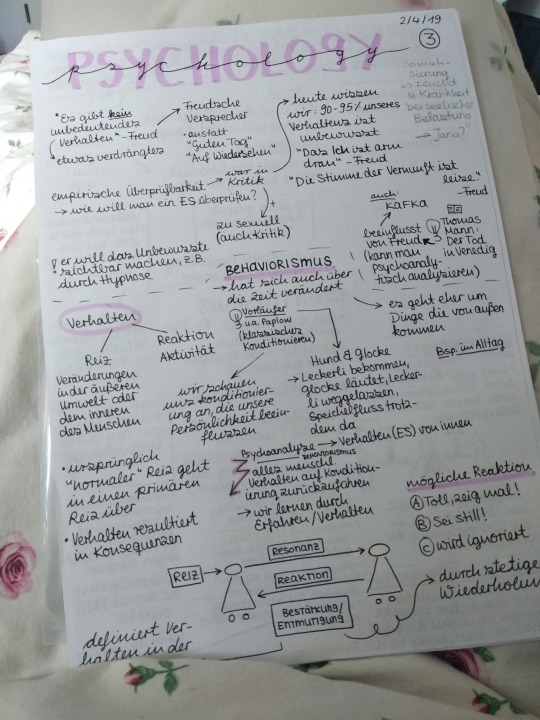 2/4/19
PSYCHOLOGY
psychology
3
Somati-
sierung
=> Flucht
in Krankheit
bei seelischer
Belastung
→ Jana?
"Es gibt kein
unbedeutendes
Verhalten" - Freud
• etwas verdrängtes
Freudsche
Versprecher
• anstatt
"Guten Tag"
"Auf Wiedersehen"
heute wissen
wir: 90-95% unseres
Verhaltens ist
unbewusst
"Das Ich ist arm
dran" - Freud
"Die Stimme der Vernunft ist
leise" - Freud
empirische Überprüfbarkeit → war in
Kritik
→ wie will man ein ES überprüfen?
+
zu sexuell
(auch Kritik)
auch:
KAFKA
beeinflusst
von Freud
(kann man
psychoanaly-
tisch analysieren)
Thomas
Mann:
Der Tod
in Venedig
er will das Unbewusste
sichtbar machen, z.B.
durch Hypnose
BEHAVIORISMUS
→ hat sich auch über
die Zeit verändert
→ es geht eher um
Dinge die von außen
kommen
Vorläufer
u.a. Pawlow
(klassisches
Konditionieren)
Verhalten
Reiz
Reaktion
Aktivität
Veränderungen
in der äußeren
Umwelt oder
dem inneren
des Menschen
wir schauen
uns konditionier-
ung an, die unsere
Persönlichkeit beein-
flussen
Hund & Glocke
→ Leckerli bekommen,
glocke läutet, Lecker-
li weggelassen,
Speichelfluss trotz-
dem da
Bsp. im Alltag
Psychoanalyse → Verhalten (ES) von innen
BEHAVIORISMUS
alles menschl.
Verhalten auf Kondition-
ierung zurückzuführen
→ wir lernen durch
Erfahren/Verhalten
• ursprünglich
"normaler" Reiz geht
in einen primären
Reiz über
• Verhalten resultiert
in Konsequenzen
mögliche Reaktion
A Toll, zeig mal!
B Sei still!
C wird ignoriert
REIZ
Resonanz
Reaktion
Bestärkung/
Entmutigung
→ durch stetige
Wiederholun
definiert Ver-
halten in der